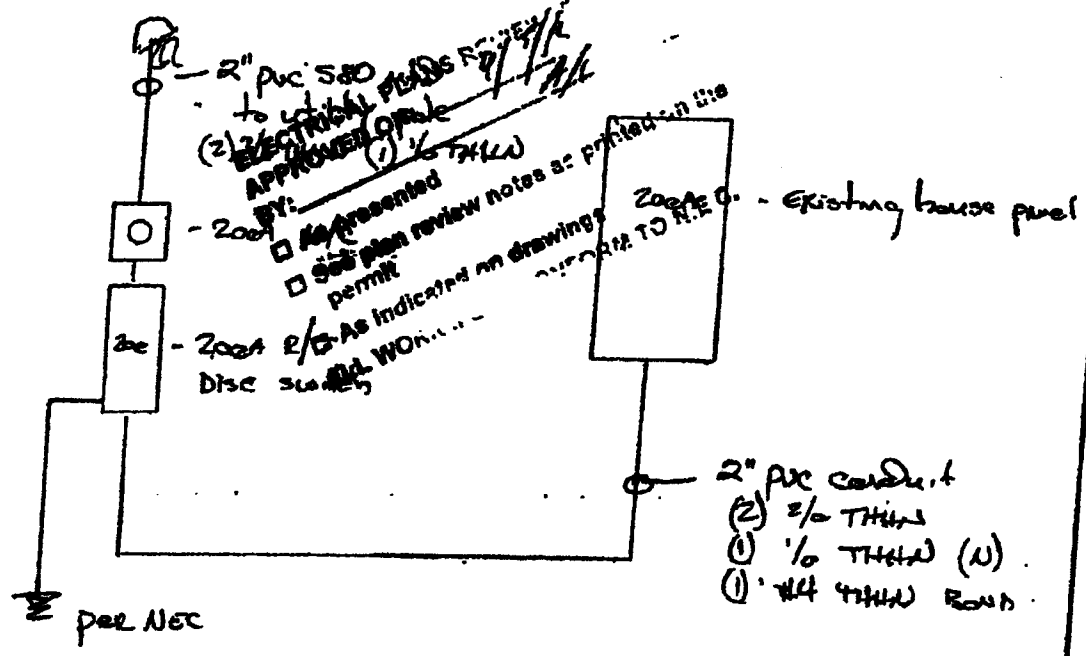 2" PVC S80
to utility
(2) 2/0
(1) 1/0 THHN
ELECTRICAL PLANS
APPROVED
BY:
As presented
See plan review notes as printed on the
permit
As indicated on drawings
ALL WORK
CONFORM TO N.E.C.
- 200A
200
- 200A
Disc switch
200A
- Existing house panel
2" PVC conduit
(2) 2/0 THHN
(1) 1/0 THHN (N)
(1) #4 THHN Bond
per NEC